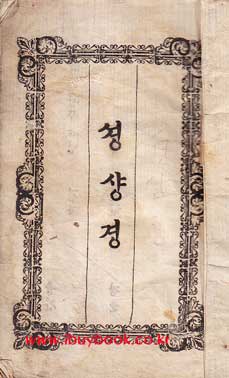 셩샹경
www.ibuybook.co.kr